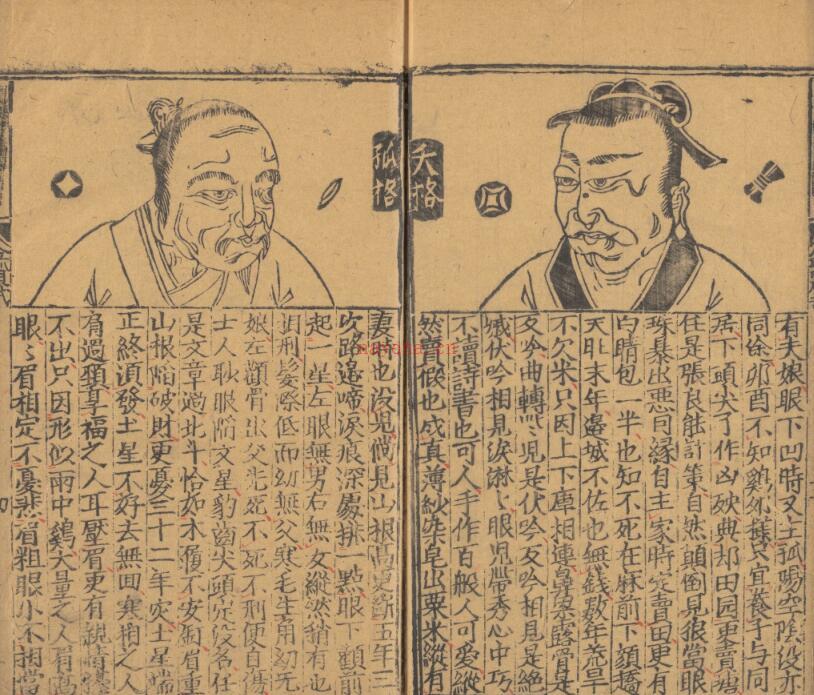 夭格
有夫娘眼下凹時又主孤陽空陰没亦
同 卯酉不知鷄 只宜養子与同
居下頭尖了作凶殃典却田园更賣塘
任是張良能計策自然顛倒見狼當眼
珠暴出悪因緣自主家時定賣田更有
白睛包一半也知不死在床前下頷
天旺末年邉城不佐也無錢数年荒旱
不欠米只因上下庫相連鼻梁露骨是
反吟曲轉些児是伏吟反吟相見是絶
滅伏吟相見淚淋〻眼児帶秀心中巧
不讀詩書也可人手作百般人可愛縱
然賣假也成真薄紗染皂出粟米縱有
孤格
妻也没児倘見山根高更斷五年三
次路邉啼淚痕深處排一點眼下顴前
起一星左眼無男右無女縱然稍有也
相刑髮際低而幼無父寒毛生角幼无
娘左顴骨出父先死不死不刑便自傷
士人 眼陷文星豹齒尖頭定没名任
是文章過北斗恰如木履不安 眉重
山根陷破財更憂三十二年灾土星端
正終須發土星不好去無囬寒相之人
肩過頸享福之人耳壓眉更有親情
不出只因形似雨中鷄大量之人眉高
眼〻眉相定不憂悲眉粗眼小不相當